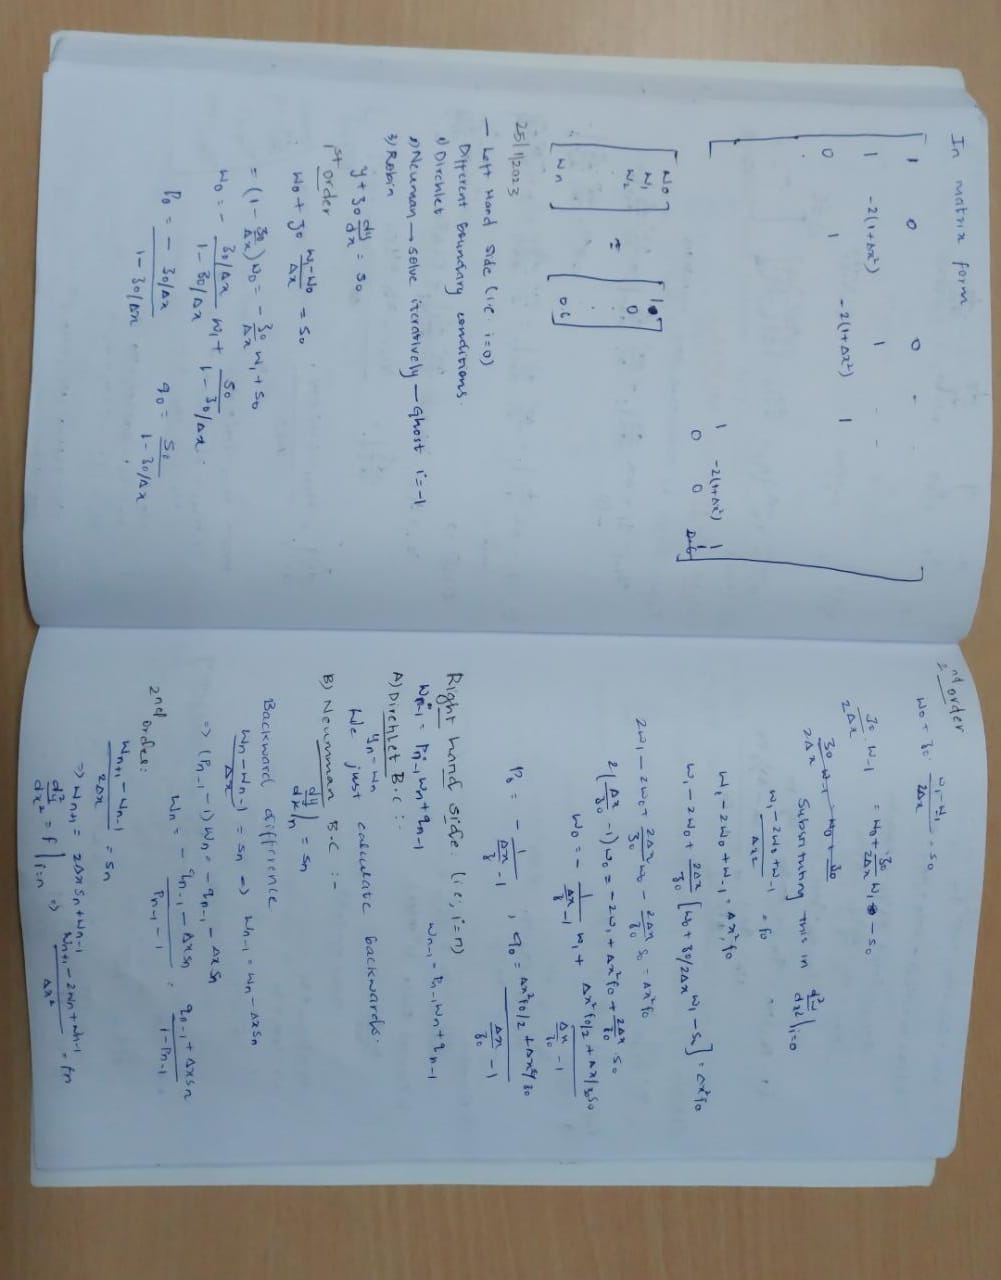 In matrix form
1 0 0 -
1 -2(1+Δx²) 1 -
0 1 -2(1+Δx²) 1
1 -2(1+Δx²) 1
0 0
w₀
w₁
w₂
wₙ
=
1
0
0.6
25/1/2023
— Left Hand Side (i.e. i=0)
Different boundary conditions.
1) Dirchlet
2) Neuman → solve iteratively — Ghost i=-1
3) Robin
y + z₀ dy/dx = s₀
1st order
w₀ + z₀ (w₁-w₀)/Δx = s₀
= (1 - z₀/Δx) w₀ = - z₀/Δx w₁ + s₀
w₀ = - (z₀/Δx)/(1 - z₀/Δx) w₁ + s₀/(1 - z₀/Δx).
P₀ = - (z₀/Δx)/(1 - z₀/Δx) q₀ = s₀/(1 - z₀/Δx)
2nd order
w₀ + z₀ (w₁-w₋₁)/2Δx = s₀
z₀/2Δx w₋₁ = w₀ + z₀/2Δx w₁ - s₀
Substituting this in d²w/dx²|i=0
(w₁-2w₀+w₋₁)/Δx² = f₀
w₁-2w₀+w₋₁ = Δx²f₀
w₁-2w₀ + 2Δx/z₀ [w₀ + z₀/2Δx w₁ - s₀] = Δx²f₀
2w₁-2w₀ + 2Δx/z₀ w₀ - 2Δx/z₀ s₀ = Δx²f₀
2(Δx/z₀ - 1) w₀ = -2w₁ + Δx²f₀ + 2Δx/z₀ s₀
w₀ = - 1/(Δx/z₀ - 1) w₁ + (Δx²f₀/2 + Δx/z₀ s₀)/(Δx/z₀ - 1)
P₀ = - 1/(Δx/z₀ - 1) , q₀ =
Right hand side: (i.e, i=n)
wₙ₋₁ = Pₙ₋₁ wₙ + qₙ₋₁ wₙ₋₁ = Pₙ₋₁wₙ + qₙ₋₁
A) Dirchlet B.C :-
yₙ = wₙ
We just calculate backwards.
B) Neumman B.C :-
dy/dx|n = sₙ
Backward difference
(wₙ-wₙ₋₁)/Δx = sₙ ⇒ wₙ₋₁ = wₙ - Δxsₙ
⇒ (Pₙ₋₁ - 1) wₙ = -qₙ₋₁ - Δxsₙ
wₙ = (-qₙ₋₁ - Δxsₙ)/(Pₙ₋₁ - 1) = (qₙ₋₁ + Δxsₙ)/(1 - Pₙ₋₁)
2nd order:
(wₙ₊₁ - wₙ₋₁)/2Δx = sₙ
⇒ wₙ₊₁ = 2Δxsₙ + wₙ₋₁
d²y/dx² = f|i=n ⇒ (wₙ₊₁-2wₙ+wₙ₋₁)/Δx² = fₙ